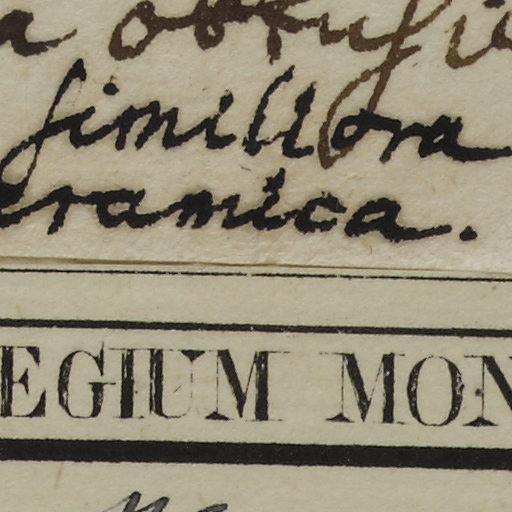 a obtusi
simillora
eramica.
EGIUM MON